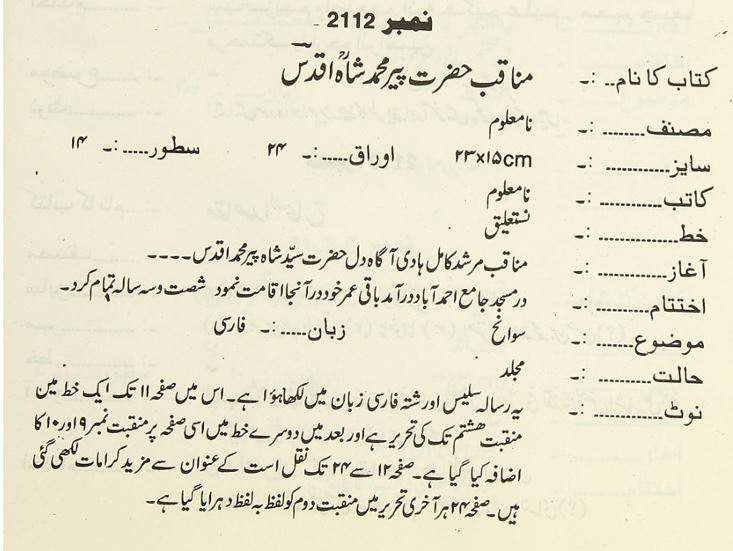 نمبر 2112
کتاب کا نام.. :۔ مناقب حضرت پیر محمد شاہؒ اقدسؔ
مصنف........ :۔ نامعلوم
سایز........... :۔ ۲۳x۱۵cm اوراق.....:۔ ۲۴ سطور.....:۔ ۱۴
کاتب.......... :۔ نامعلوم
خط............ :۔ نستعلیق
آغاز........... :۔ مناقب مرشد کامل ہادی آگاہ دل حضرت سیّد شاہ پیر محمد اقدس ۔۔۔۔
اختتام........ :۔ در مسجد جامع احمد آباد در آمد باقی عمر خود در آنجا اقامت نمود شصت و سہ سالہ تمام کرد۔
موضوع....... :۔ سوانح زبان.....:۔ فارسی
حالت......... :۔ مجلد
نوٹ........... :۔ یہ رسالہ سلیس اور شتہ فارسی زبان میں لکھا ہؤا ہے۔ اس میں صفحہ ۱۱ تک ایک خط مین
منقبت ھشتم تک کی تحریر ہے اور بعد میں دوسرے خط میں اسی صفحہ پر منقبت نمبر ۹ اور ۱۰ کا
اضافہ کیا گیا ہے۔ صفحہ ۱۲ سے ۲۴ تک نقل است کے عنوان سے مزید کرامات لکھی گئی
ہیں۔ صفحہ ۲۴ ہر آخری تحریر میں منقبت دوم کو لفظ بہ لفظ دہرایا گیا ہے۔